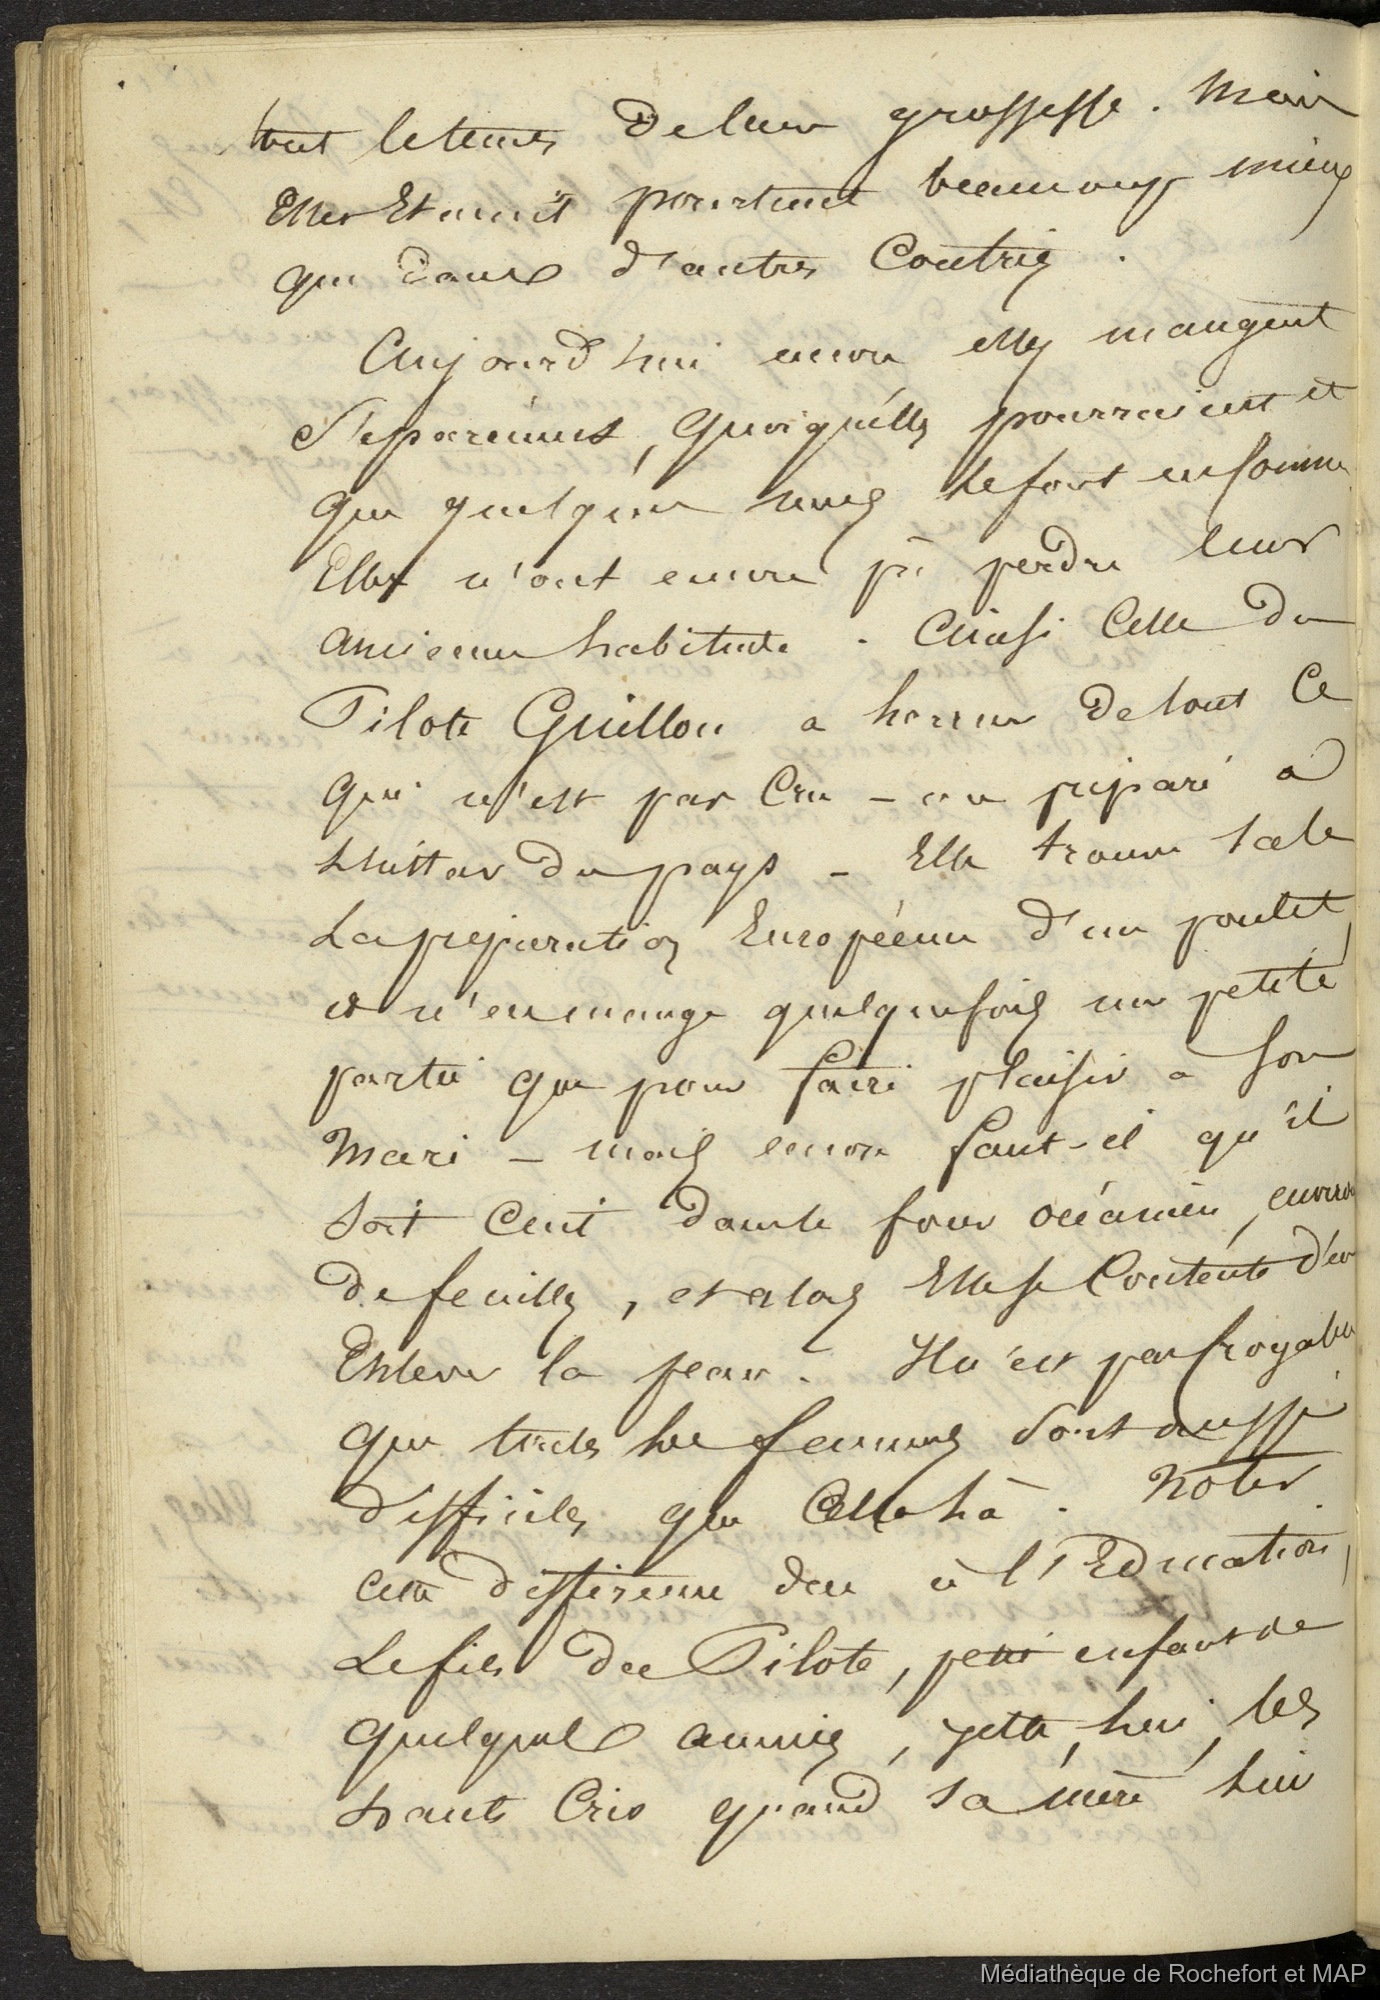 tout le temps de leur grossesse. Mais
Elles Etaient pourtant beaucoup mieux
que dans d'autres Contrées.
Aujourd'hui encore elles mangent
Séparément, quoiqu'elles pourraient et
que quelques unes le font en somme
Elles n'ont encore pû perdre leur
ancienne habitude. Ainsi Celle du
Pilote Guillou a horreur de tout Ce
qui n'est pas Cru - ou préparé à
l'instar du pays - Elle trouve sale
La préparation Européenne d'un poulet,
et n'en mange quelquefois une petite
partie que pour faire plaisir a son
Mari - mais encore faut-il qu'il
soit Cuit dans le four océanien, entouré
de feuilles, et alors Elle se Contente d'en
Enlever la peau. Il n'est pas croyable
que toutes les femmes sont aussi
difficiles que Celle là. Noter
cette différence due à l'Education,
Le fils du Pilote, petit enfant de
quelques années, jette, lui, les
hauts Cris quand sa mère lui
Médiathèque de Rochefort et MAP